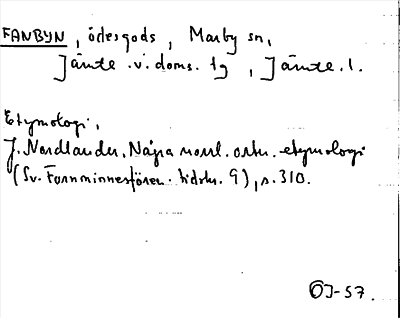 FANBYN, ödesgods, Marby sn,
Jämte.v.doms.tg, Jämte.l.
Etymologi,
J. Nordlander, Några norrl. ortn. etymologi
(Sv. Fornminnesfören. tidskr. 9), s. 310.
OJ-57.